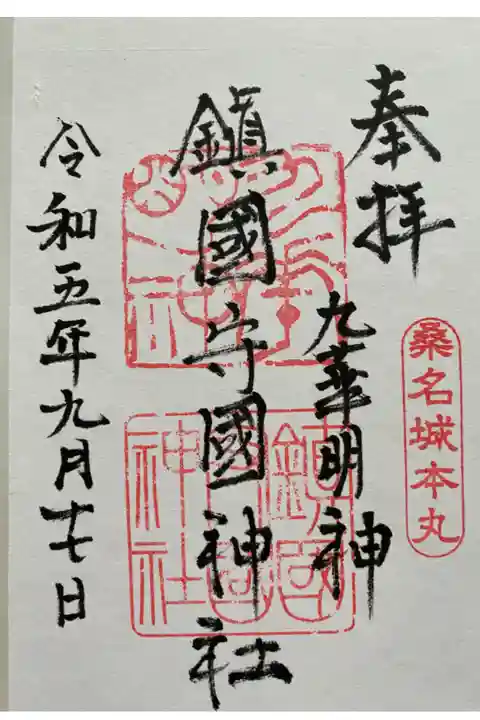 奉拝
桑名城本丸
九華明神
鎮國守國神社
令和五年九月十七日